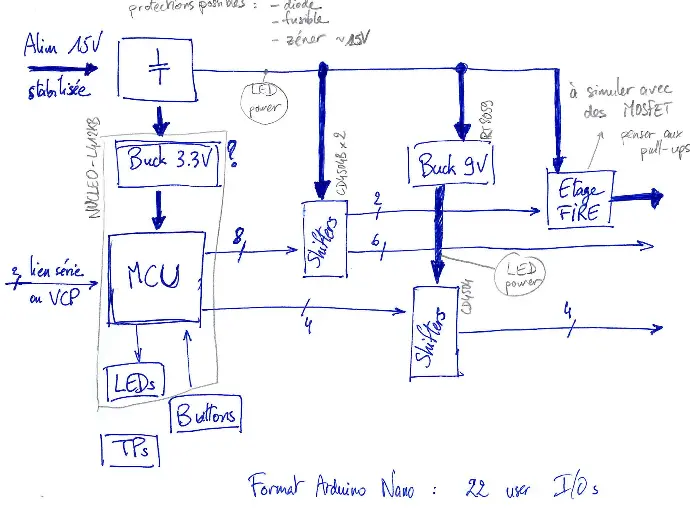 protections possibles : - diode
- fusible
- zéner ~15V
Alim 15V
stabilisée
LED
power
à simuler avec
des MOSFET
penser aux
pull-ups
NUCLEO-L412KB
Buck 3.3V
?
CD4504B x 2
RT8059
Buck 9V
Etage
FIRE
2
8
6
Shifters
MCU
2
lien série
ou VCP
LED
power
4
CD4504
Shifters
4
LEDs
Buttons
TPs
Format Arduino Nano : 22 user I/Os